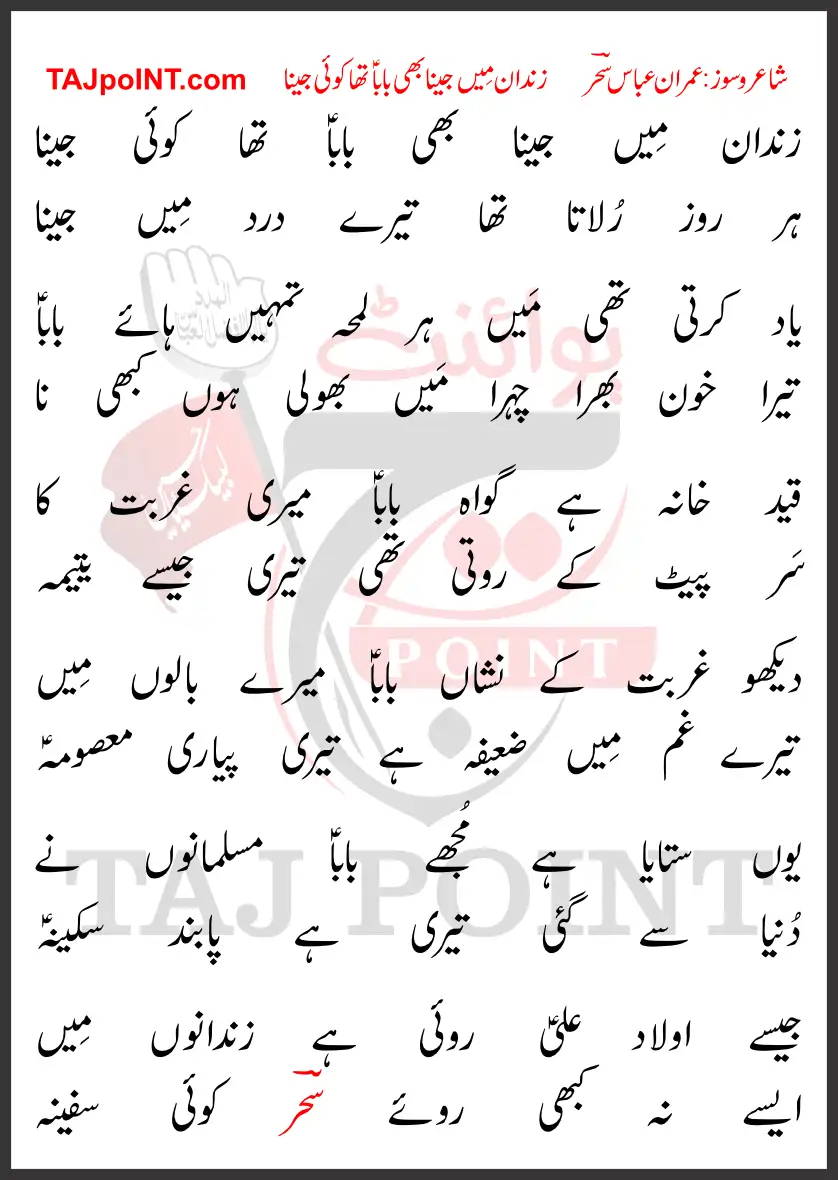 شاعر و سوز: عمران عباس سحرؔ زندان مِیں جینا بھی باباؑ تھا کوئی جینا TAJpoINT.com
زندان مِیں جینا بھی باباؑ تھا کوئی جینا
ہر روز رُلاتا تھا تیرے درد مِیں جینا
یاد کرتی تھی مَیں ہر لمحہ تمہیں ہائے باباؑ
تیرا خون بھرا چہرا مَیں بھولی ہوں کبھی نا
قید خانہ ہے گواہ باباؑ میری غربت کا
سَر پیٹ کے روتی تھی تیری جیسے یتیمہ
دیکھو غربت کے نشاں باباؑ میرے بالوں مِیں
تیرے غم مِیں ضعیفہ ہے تیری پیاری معصومہؑ
یوں ستایا ہے مُجھے باباؑ مسلمانوں نے
دُنیا سے گئی تیری ہے پابند سکینہؑ
جیسے اولاد علیؑ روئی ہے زندانوں مِیں
ایسے نہ کبھی روئے سحرؔ کوئی سفینہ
پوائنٹ
تاج
POINT
TAJ POINT
لبیک یا حسین